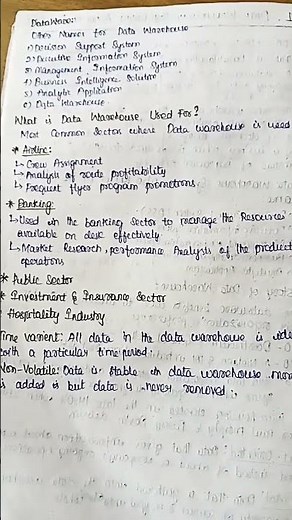 Data Ware:
Other Names for Data Warehouse
1) Decision Support System
2) Executive Information System
3) Management Information System
4) Business Intelligence Solution
5) Analytic Application
6) Data Warehouse
What is Data Warehouse Used For?
Most Common Sector where Data warehouse is used
* Airline:
↳ Crew Assignment
↳ Analysis of route profitability
↳ Frequent flyer program promotions.
* Banking:
↳ Used in the banking sector to manage the Resources
available on desk effectively
↳ Market Research, performance Analysis of the product
operations
* Public Sector
* Investment & Insurance Sector
Hospitality Industry
Time varient: All data in the data warehouse is ide
with a particular time period.
Non-Volatile: Data is stable in data warehouse more
is added is but data is never removed.